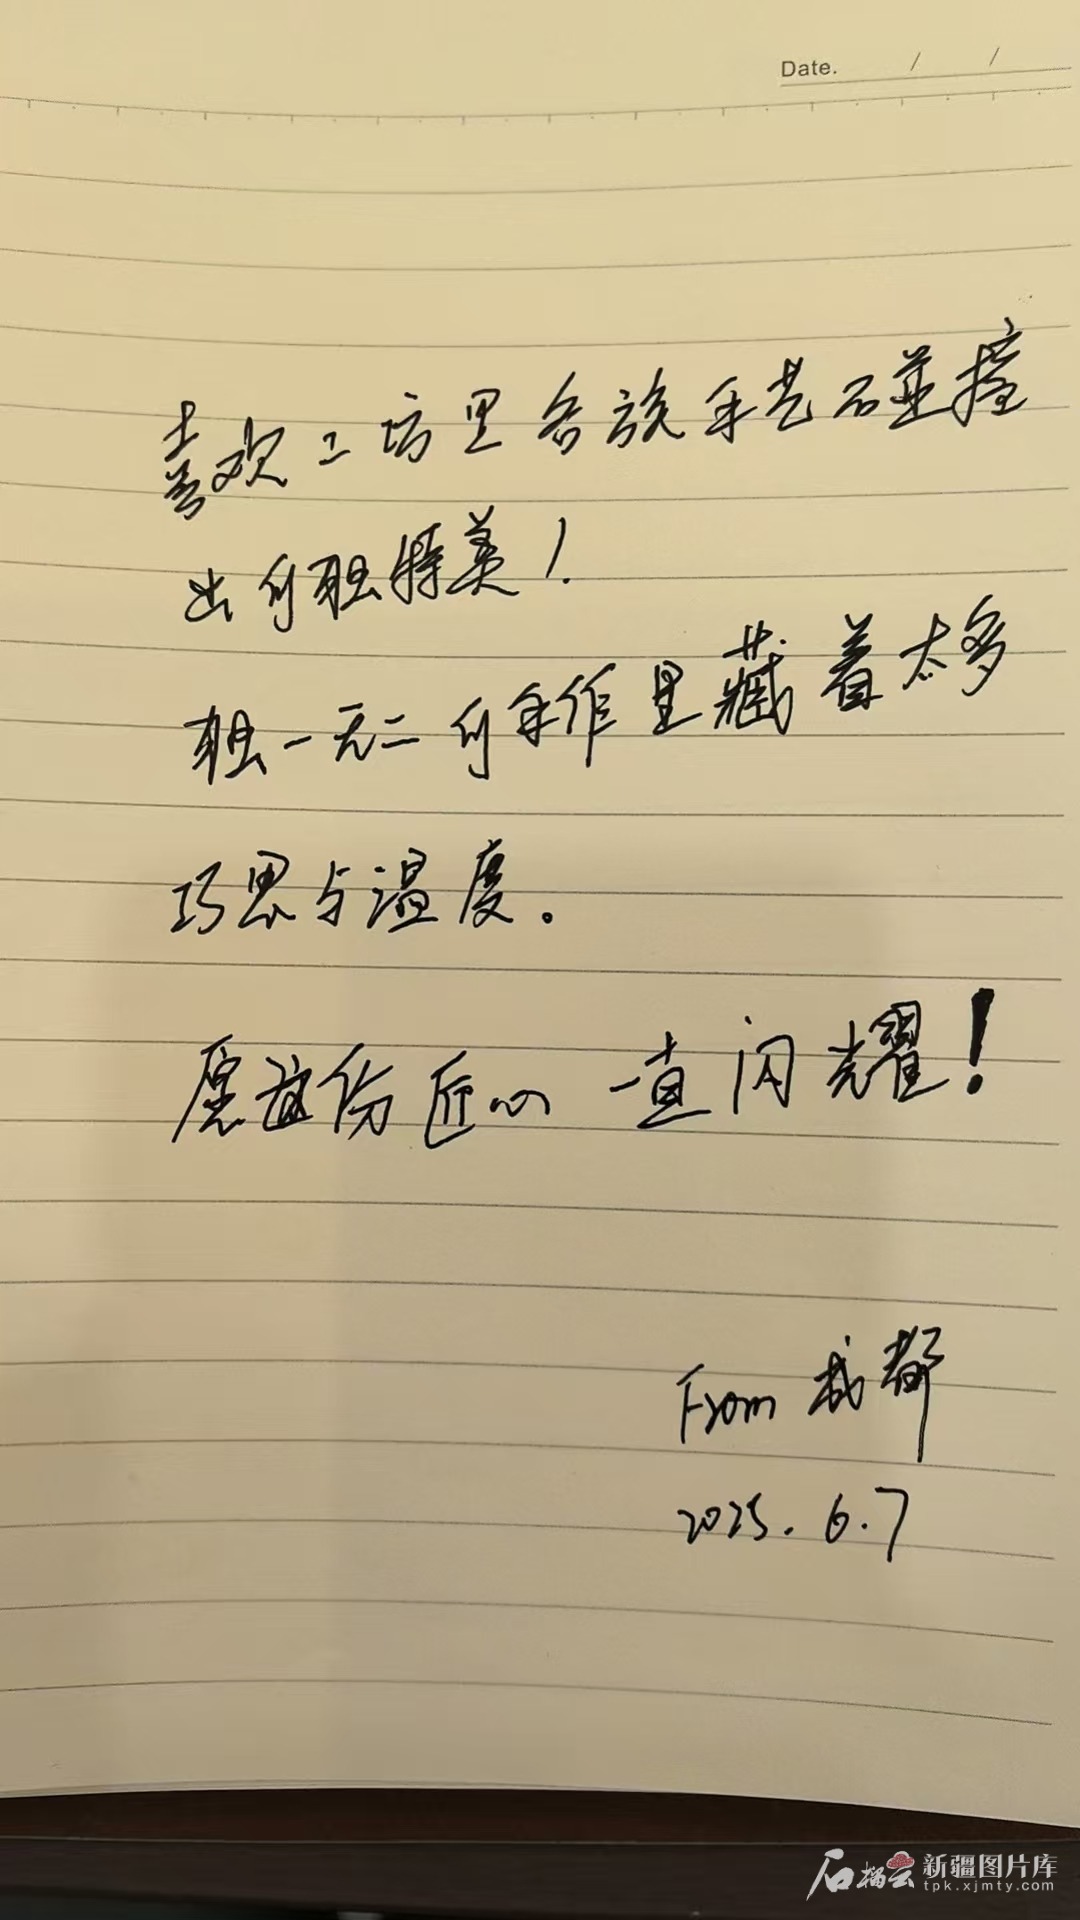 Date. / /
喜欢工坊里各族手艺石碰撞
出的独特美!
独一无二的手作里藏着太多
巧思与温度。
愿这份匠心一直闪耀!
From 成都
2025.6.7
石榴云 新疆图片库
tpk.xjmty.com